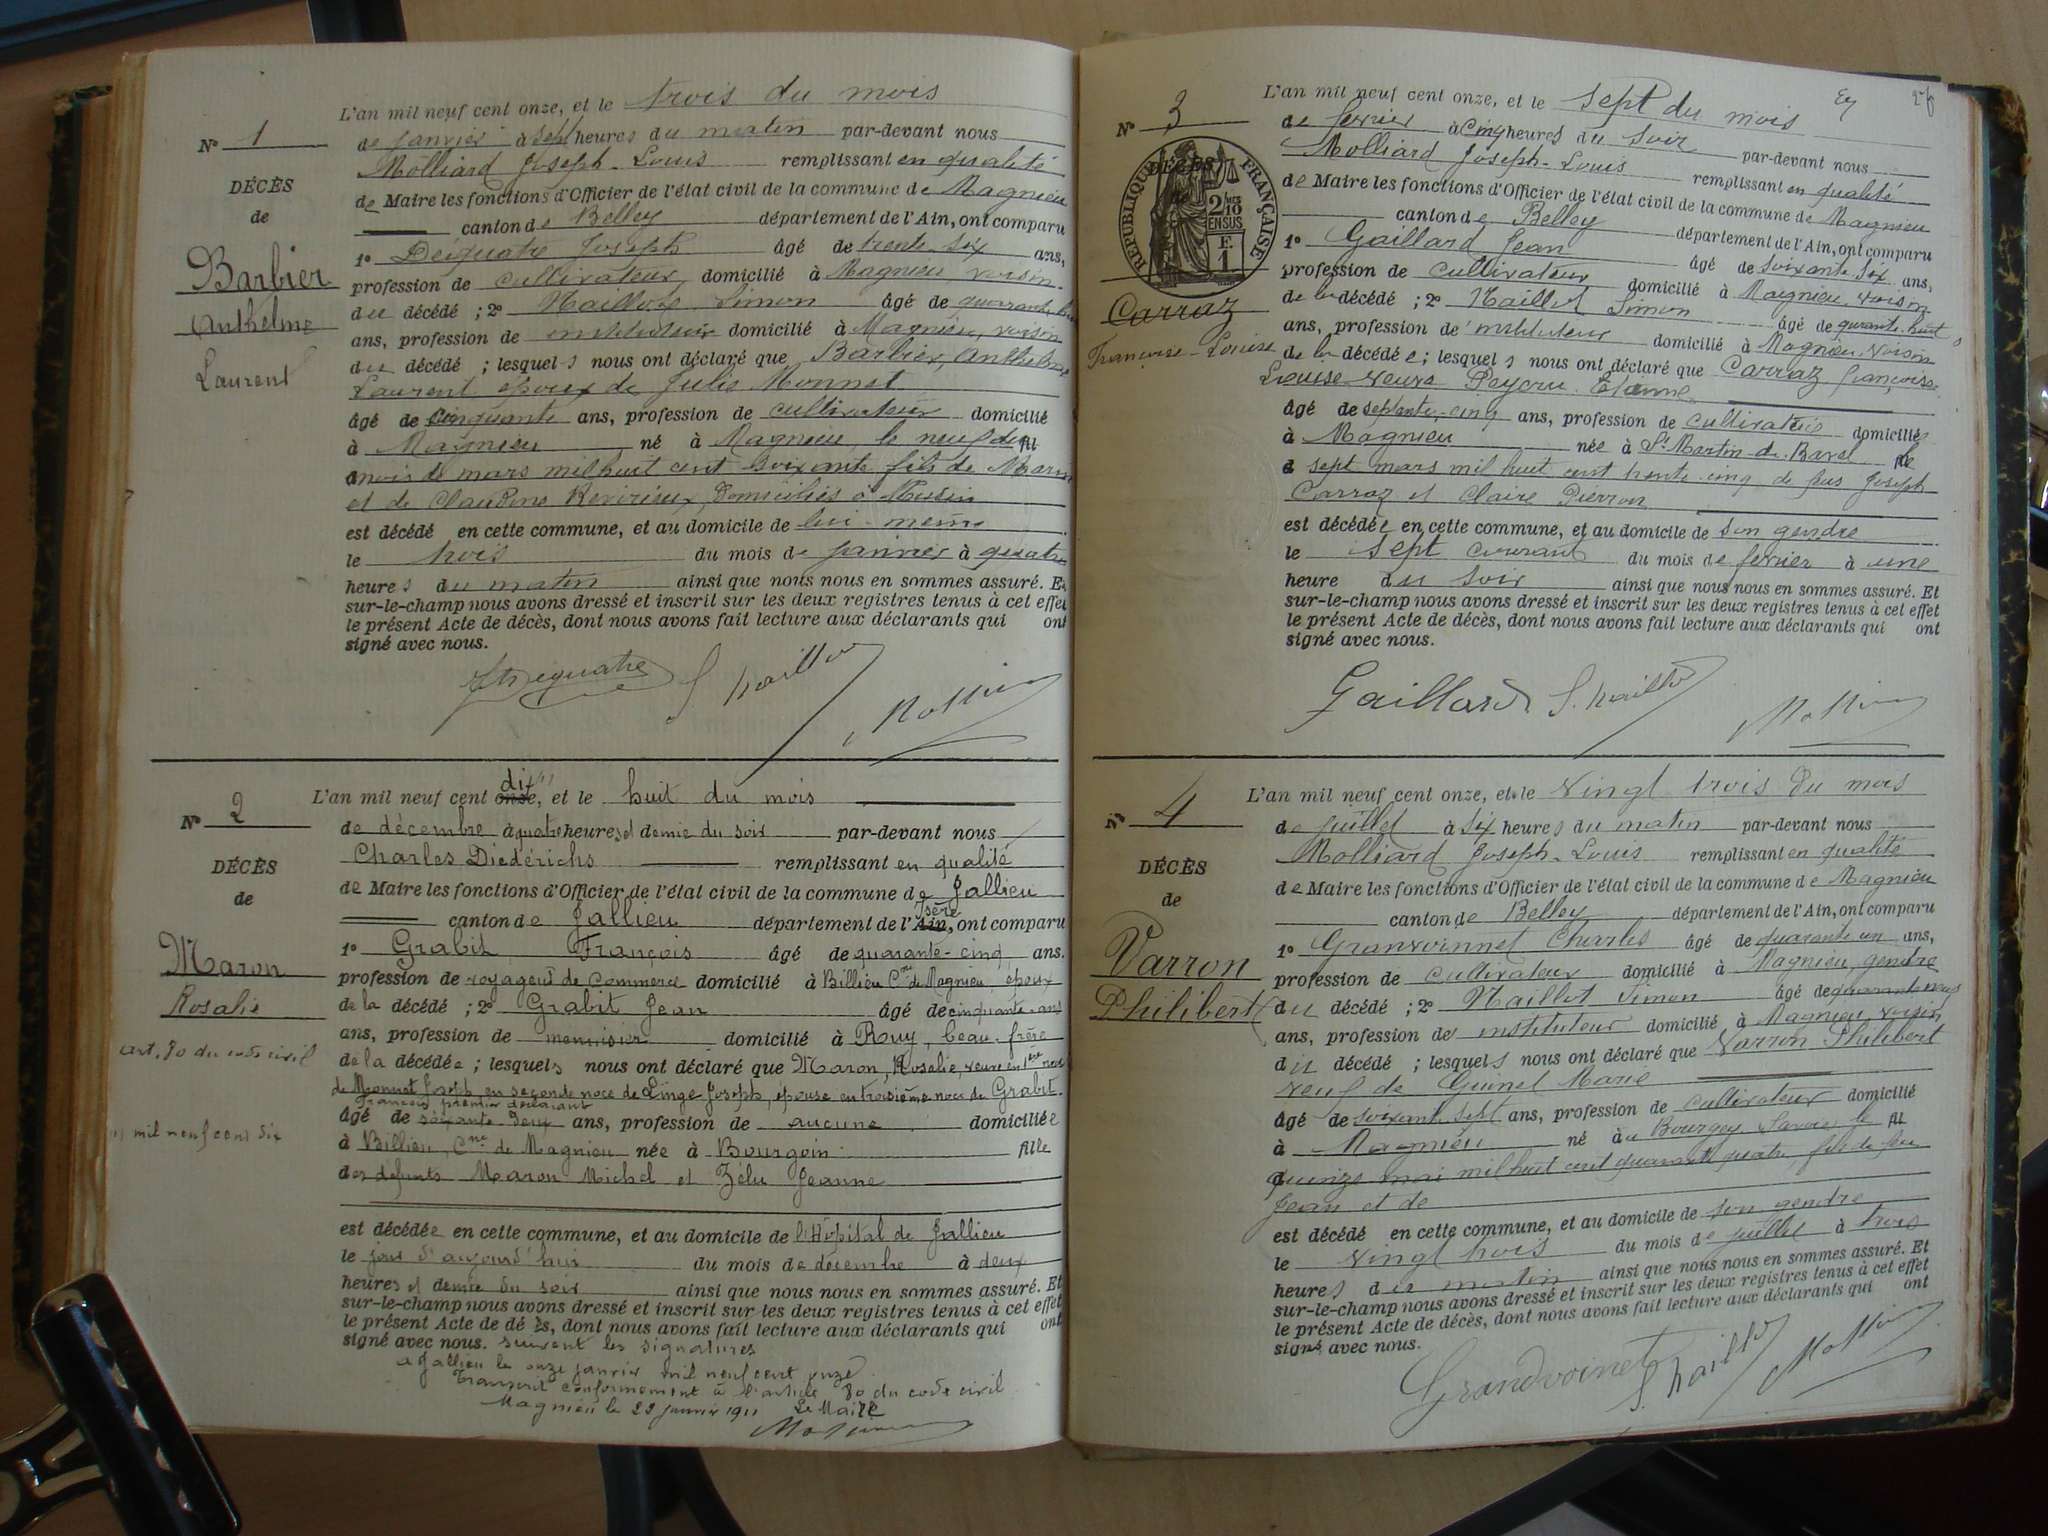 L'an mil neuf cent onze, et le trois du mois
N° 1
de janvier à sept heures du matin par-devant nous
Molliard Joseph-Louis remplissant en qualité
DÉCÈS
de Maire les fonctions d'Officier de l'état civil de la commune de Magnieu
de
canton de Belley département de l'Ain, ont comparu
1° Dequatre Joseph âgé de trente-six ans,
Barbier
profession de cultivateur domicilié à Magnieu, voisin
du décédé ; 2° Naillod Simon âgé de quarante huit
Anthelme
ans, profession de instituteur domicilié à Magnieu, voisin
du décédé ; lesquels nous ont déclaré que Barbier, Anthelme
Laurent
Laurent époux de Julie Monnet
âgé de cinquante ans, profession de cultivateur domicilié
à Magnieu né à Magnieu, le neuf du fil
mois de mars mil huit cent soixante fils de
et de Claudine domiciliés à
est décédé en cette commune, et au domicile de lui-même
le trois du mois de janvier à quatre
heures du matin ainsi que nous nous en sommes assuré. Et
sur-le-champ nous avons dressé et inscrit sur les deux registres tenus à cet effet
le présent Acte de décès, dont nous avons fait lecture aux déclarants qui ont
signé avec nous.
N° 2
L'an mil neuf cent onze, dix (1) et le huit du mois
de décembre à quatre heures et demie du soir par-devant nous
Charles Diedérichs remplissant en qualité
DÉCÈS
de Maire les fonctions d'Officier de l'état civil de la commune de Jallieu
de
canton de Jallieu département de l'Ain Isère, ont comparu
1° Grabit François âgé de quarante-cinq ans.
Maron
profession de voyageur de commerce domicilié à Billieu Cne de Magnieu époux
Rosalie
de la décédé ; 2° Grabit Jean âgé de cinquante ans
ans, profession de menuisier domicilié à Ruy, beau-frère
art. 80 du code civil
de la décédée ; lesquels nous ont déclaré que Maron, Rosalie, veuve en 1ère noce
de Monnet Joseph, en seconde noce de Linge Joseph, épouse en troisième noce de Grabit
François premier déclarant
âgé de soixante deux ans, profession de aucune domiciliée
(1) mil neuf cent dix
à Billieu, Cne de Magnieu née à Bourgoin fille
des défunts Maron Michel et Zélu Jeanne
est décédée en cette commune, et au domicile de l'Hôpital de Jallieu
le jour d'aujourd'hui du mois de décembre à deux
heures et demie du soir ainsi que nous nous en sommes assuré. Et
sur-le-champ nous avons dressé et inscrit sur les deux registres tenus à cet effet
le présent Acte de décès, dont nous avons fait lecture aux déclarants qui ont
signé avec nous. suivent les signatures
a Jallieu le onze janvier mil neuf cent onze
Transcrit conformément à l'article 80 du code civil
Magnieu le 22 janvier 1911 Le Maire
L'an mil neuf cent onze, et le sept du mois
N° 3
de fevrier à cinq heures du soir par-devant nous
Molliard Joseph-Louis remplissant en qualité
DÉCÈS
RÉPUBLIQUE FRANÇAISE
2/10 EN SUS
F. 1
de Maire les fonctions d'Officier de l'état civil de la commune de Magnieu
canton de Belley département de l'Ain, ont comparu
1° Gaillard Jean âgé de soixante six ans,
profession de cultivateur domicilié à Magnieu, voisin
Carraz
de la décédé ; 2° Naillod Simon âgé de quarante-huit
ans, profession d'instituteur domicilié à Magnieu, voisin
Françoise-Louise
de la décédée ; lesquels nous ont déclaré que Carraz françoise
Louise veuve Peycru Etienne
âgé de septante-cinq ans, profession de cultivatrice domiciliée
à Magnieu née à St Martin-de-Bavel
sept mars mil huit cent trente cinq de feus Joseph
Carraz et Claire Pierron
est décédée en cette commune, et au domicile de son gendre
le sept courant du mois de fevrier à une
heure du soir ainsi que nous nous en sommes assuré. Et
sur-le-champ nous avons dressé et inscrit sur les deux registres tenus à cet effet
le présent Acte de décès, dont nous avons fait lecture aux déclarants qui ont
signé avec nous.
Gaillard
N° 4
L'an mil neuf cent onze, et le vingt trois du mois
de juillet à six heures du matin par-devant nous
Molliard Joseph-Louis remplissant en qualité
DÉCÈS
de Maire les fonctions d'Officier de l'état civil de la commune de Magnieu
de
canton de Belley département de l'Ain, ont comparu
1° Granvoinnet Charles âgé de quarante un ans,
Varron
profession de cultivateur domicilié à Magnieu, gendre
Philibert
du décédé ; 2° Naillod Simon âgé de quarante neuf
ans, profession de instituteur domicilié à Magnieu, voisin
du décédé ; lesquels nous ont déclaré que Varron Philibert
veuf de Guinet Marie
âgé de soixant sept ans, profession de cultivateur domicilié
à Magnieu né au Bourget, Savoie le fil
quinze mai mil huit cent quarante quatre, fils de feu
Jean et de
est décédé en cette commune, et au domicile de son gendre
le vingt trois du mois de juillet à trois
heures du matin ainsi que nous nous en sommes assuré. Et
sur-le-champ nous avons dressé et inscrit sur les deux registres tenus à cet effet
le présent Acte de décès, dont nous avons fait lecture aux déclarants qui ont
signé avec nous.
Grandvoinet